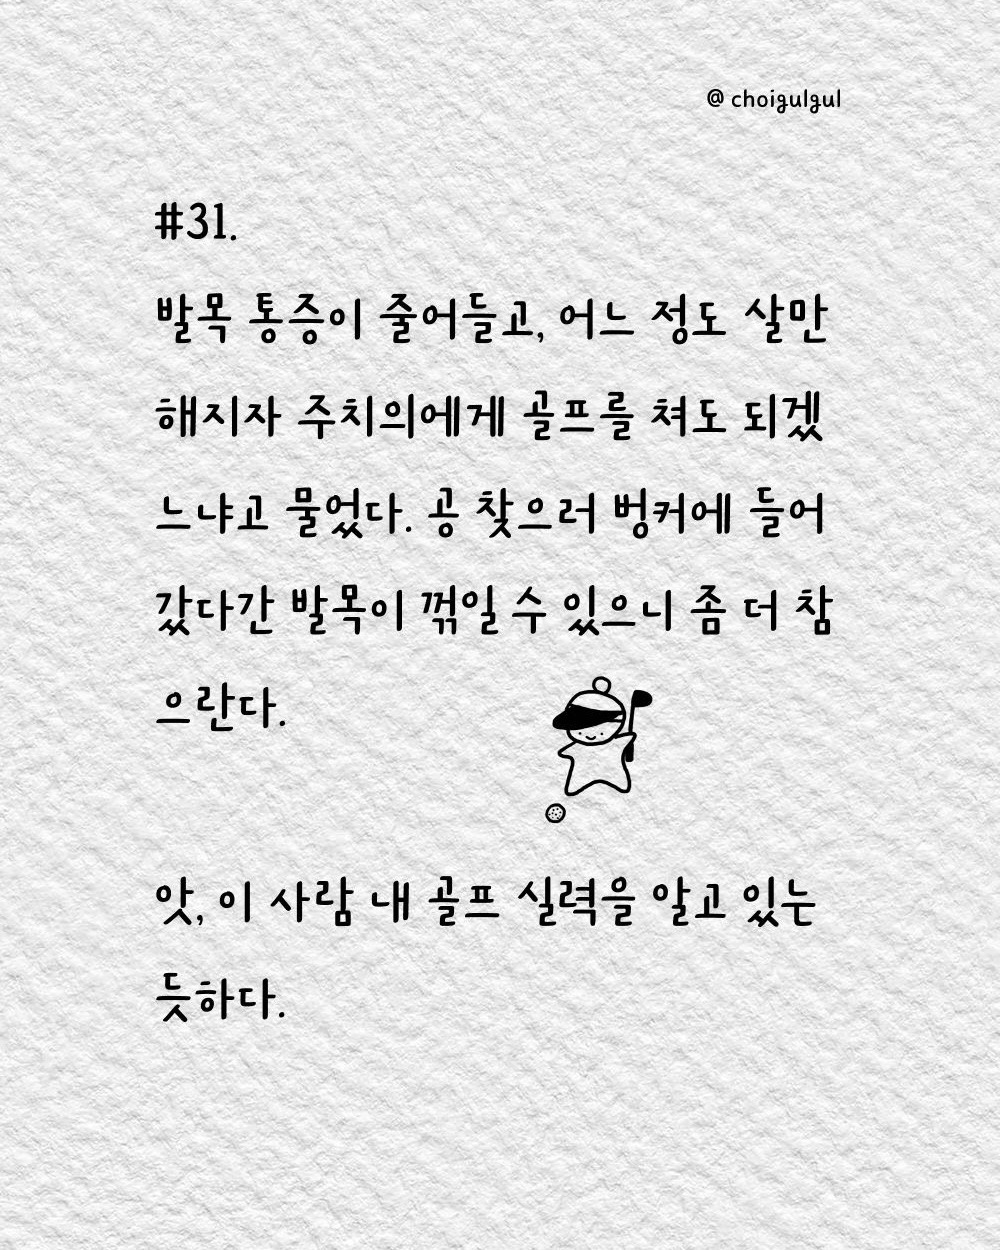 @ choigulgul
#31.
발목 통증이 줄어들고, 어느 정도 살만
해지자 주치의에게 골프를 쳐도 되겠
느냐고 물었다. 공 찾으러 벙커에 들어
갔다간 발목이 꺾일 수 있으니 좀 더 참
으란다.
앗, 이 사람 내 골프 실력을 알고 있는
듯하다.